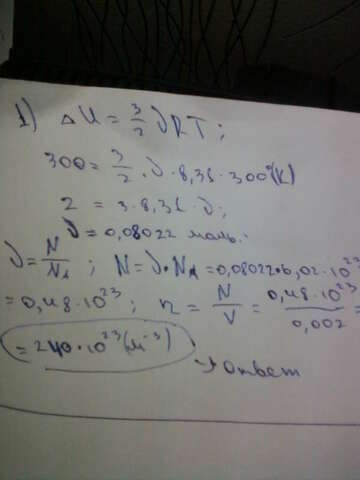 1) ΔU = 3/2 νRT;
300 = 3/2 · ν · 8,31 · 300°(K)
2 = 3 · 8,31 · ν;
ν = 0,08022 моль.
ν = N/Nₐ; N = ν · Nₐ = 0,08022 · 6,02 · 10²³
= 0,48 · 10²³; n = N/V = 0,48 · 10²³/0,002 =
= 240 · 10²³ (м⁻³)
→ ответ